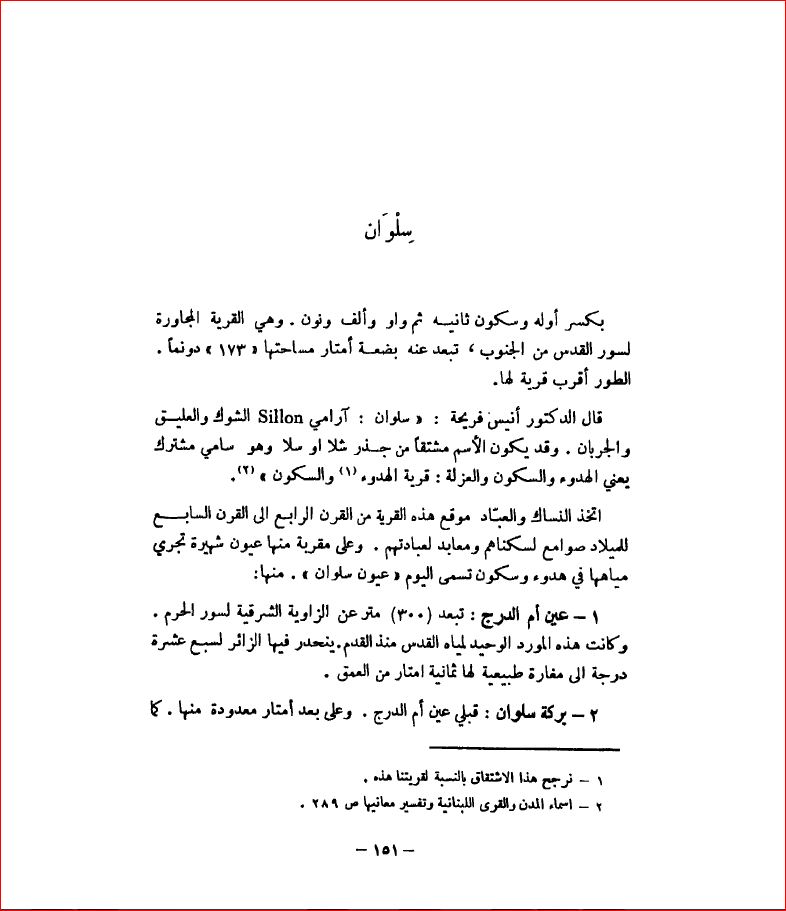 سِلْوَان
بكسر أوله وسكون ثانيـه ثم واو وألف ونون . وهي القرية المجاورة
لسور القدس من الجنوب ، تبعد عنه بضعـة أمتار مساحتها « ١٧٣ » دونماً .
الطور أقرب قرية لها.
قال الدكتور أنيس فريحة : « سلوان : آرامي Sillon الشوك والعليـق
والجربان . وقد يكون الأسم مشتقاً من جـذر شلا او سلا وهو سامي مشترك
يعني الهدوء والسكون والعزلة : قرية الهدوء (١) والسكون » (٢).
اتخذ النساك والعبّاد موقع هذه القرية من القرن الرابع الى القرن السابـع
للميلاد صوامع لسكناهم ومعابد لعبادتهم . وعلى مقربة منها عيون شهيرة تجري
مياهها في هدوء وسكون تسمى اليوم « عيون سلوان » . منها:
١ – عين أم الدرج : تبعد (٣٠٠) متر عن الزاوية الشرقية لسور الحرم .
وكانت هذه المورد الوحيد لمياه القدس منذ القدم.ينحدر فيها الزائر لسبع عشرة
درجة الى مغارة طبيعية لها ثمانية امتار من العمق .
٢ – بركة سلوان : قبلي عين أم الدرج . وعلى بعد أمتار معدودة منها . كما
١ – نرجح هذا الاشتقاق بالنسبة لقريتنا هذه .
٢ – اسماء المدن والقرى اللبنانية وتفسير معانيها ص ٢٨٩ .
– ١٥١ –